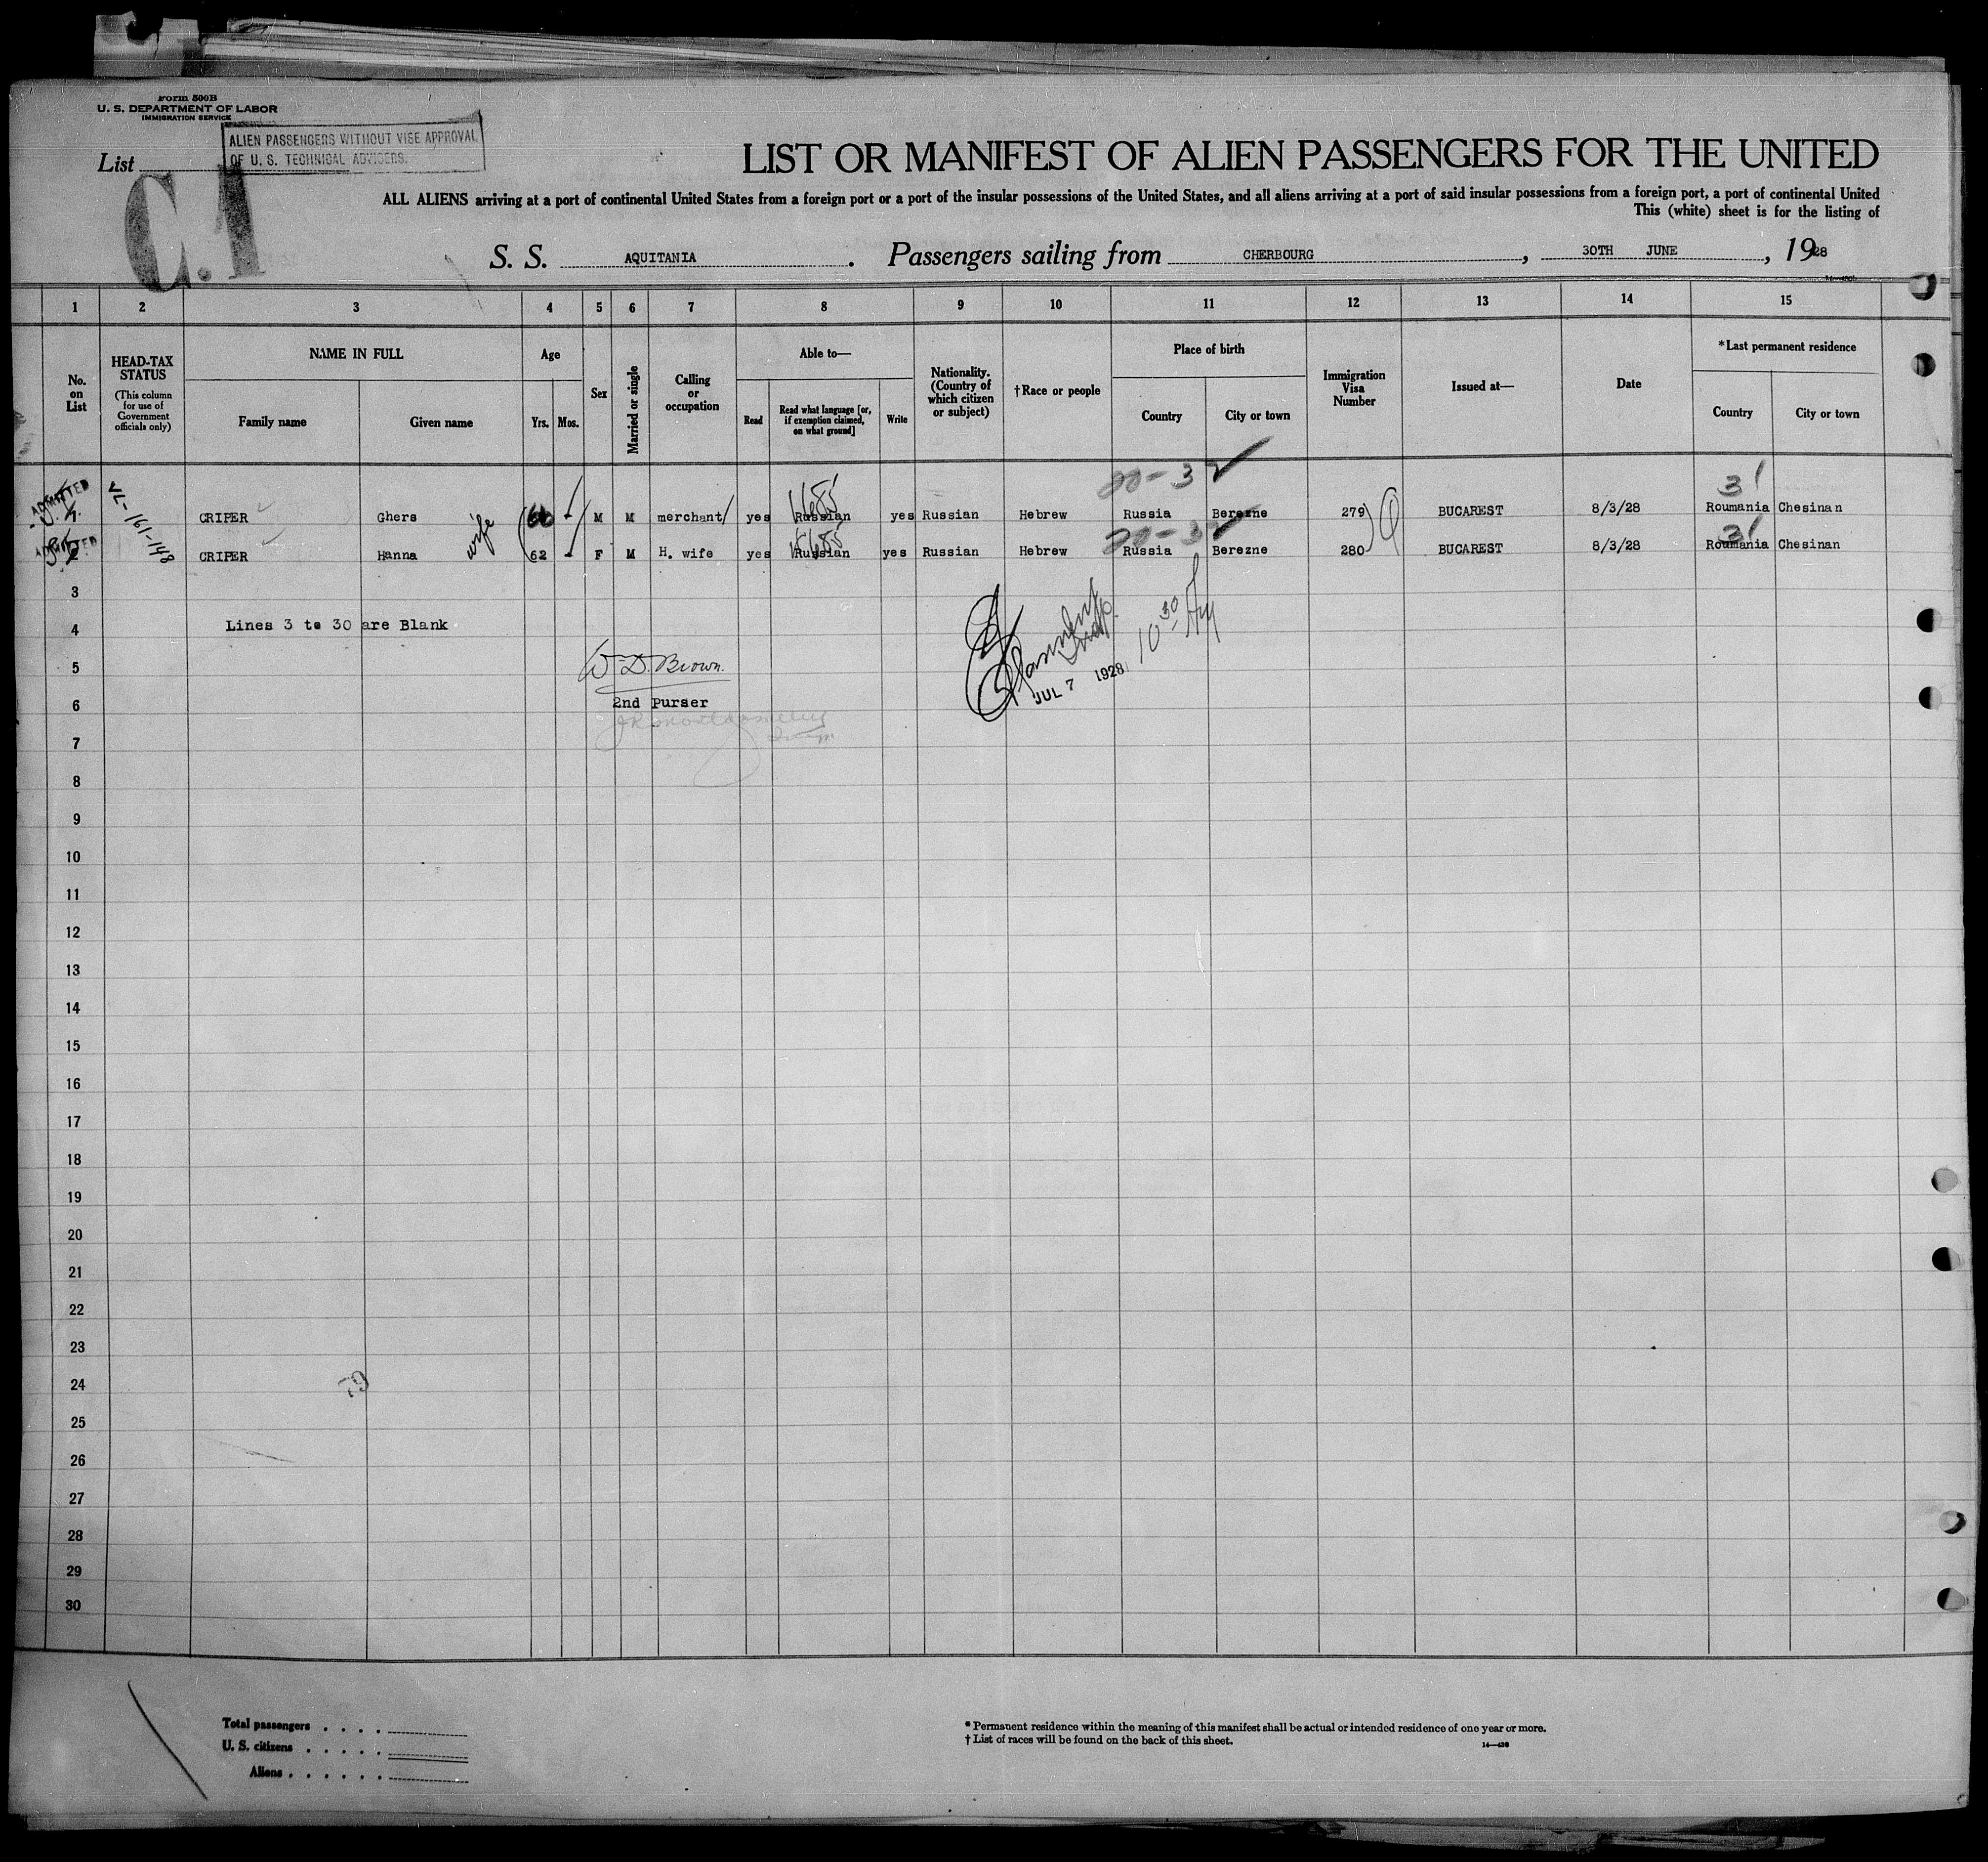 Form 500B
U. S. DEPARTMENT OF LABOR
IMMIGRATION SERVICE
ALIEN PASSENGERS WITHOUT VISE APPROVAL
OF U. S. TECHNICAL ADVISERS.
List
C.1
LIST OR MANIFEST OF ALIEN PASSENGERS FOR THE UNITED
ALL ALIENS arriving at a port of continental United States from a foreign port or a port of the insular possessions of the United States, and all aliens arriving at a port of said insular possessions from a foreign port, a port of continental United
This (white) sheet is for the listing of
S. S. AQUITANIA. Passengers sailing from CHERBOURG, 30TH JUNE, 1928
1 2 3 4 5 6 7 8 9 10 11 12 13 14 15
No. on List
HEAD-TAX STATUS
(This column for use of Government officials only)
NAME IN FULL
Family name Given name
Age
Yrs. Mos.
Sex
Married or single
Calling or occupation
Able to—
Read
Read what language [or, if exemption claimed, on what ground]
Write
Nationality. (Country of which citizen or subject)
†Race or people
Place of birth
Country City or town
Immigration Visa Number
Issued at—
Date
*Last permanent residence
Country City or town
20-3 31
ADMITTED CRIPER Ghers M M merchant yes Russian yes Russian Hebrew Russia Berezne 279 BUCAREST 8/3/28 Roumania Chesinan
VL-161-148
wife
20-3 31
ADMITTED 2 CRIPER Hanna 62 - F M H. wife yes Russian yes Russian Hebrew Russia Berezne 280 BUCAREST 8/3/28 Roumania Chesinan
3
4 Lines 3 to 30 are Blank
5 W. D. Brown.
6 2nd Purser
JUL 7 1928
10 30
7
8
9
10
11
12
13
14
15
16
17
18
19
20
21
22
23
24
25
26
27
28
29
30
Total passengers . . . .
U. S. citizens . . . . .
Aliens . . . . . .
* Permanent residence within the meaning of this manifest shall be actual or intended residence of one year or more.
† List of races will be found on the back of this sheet.